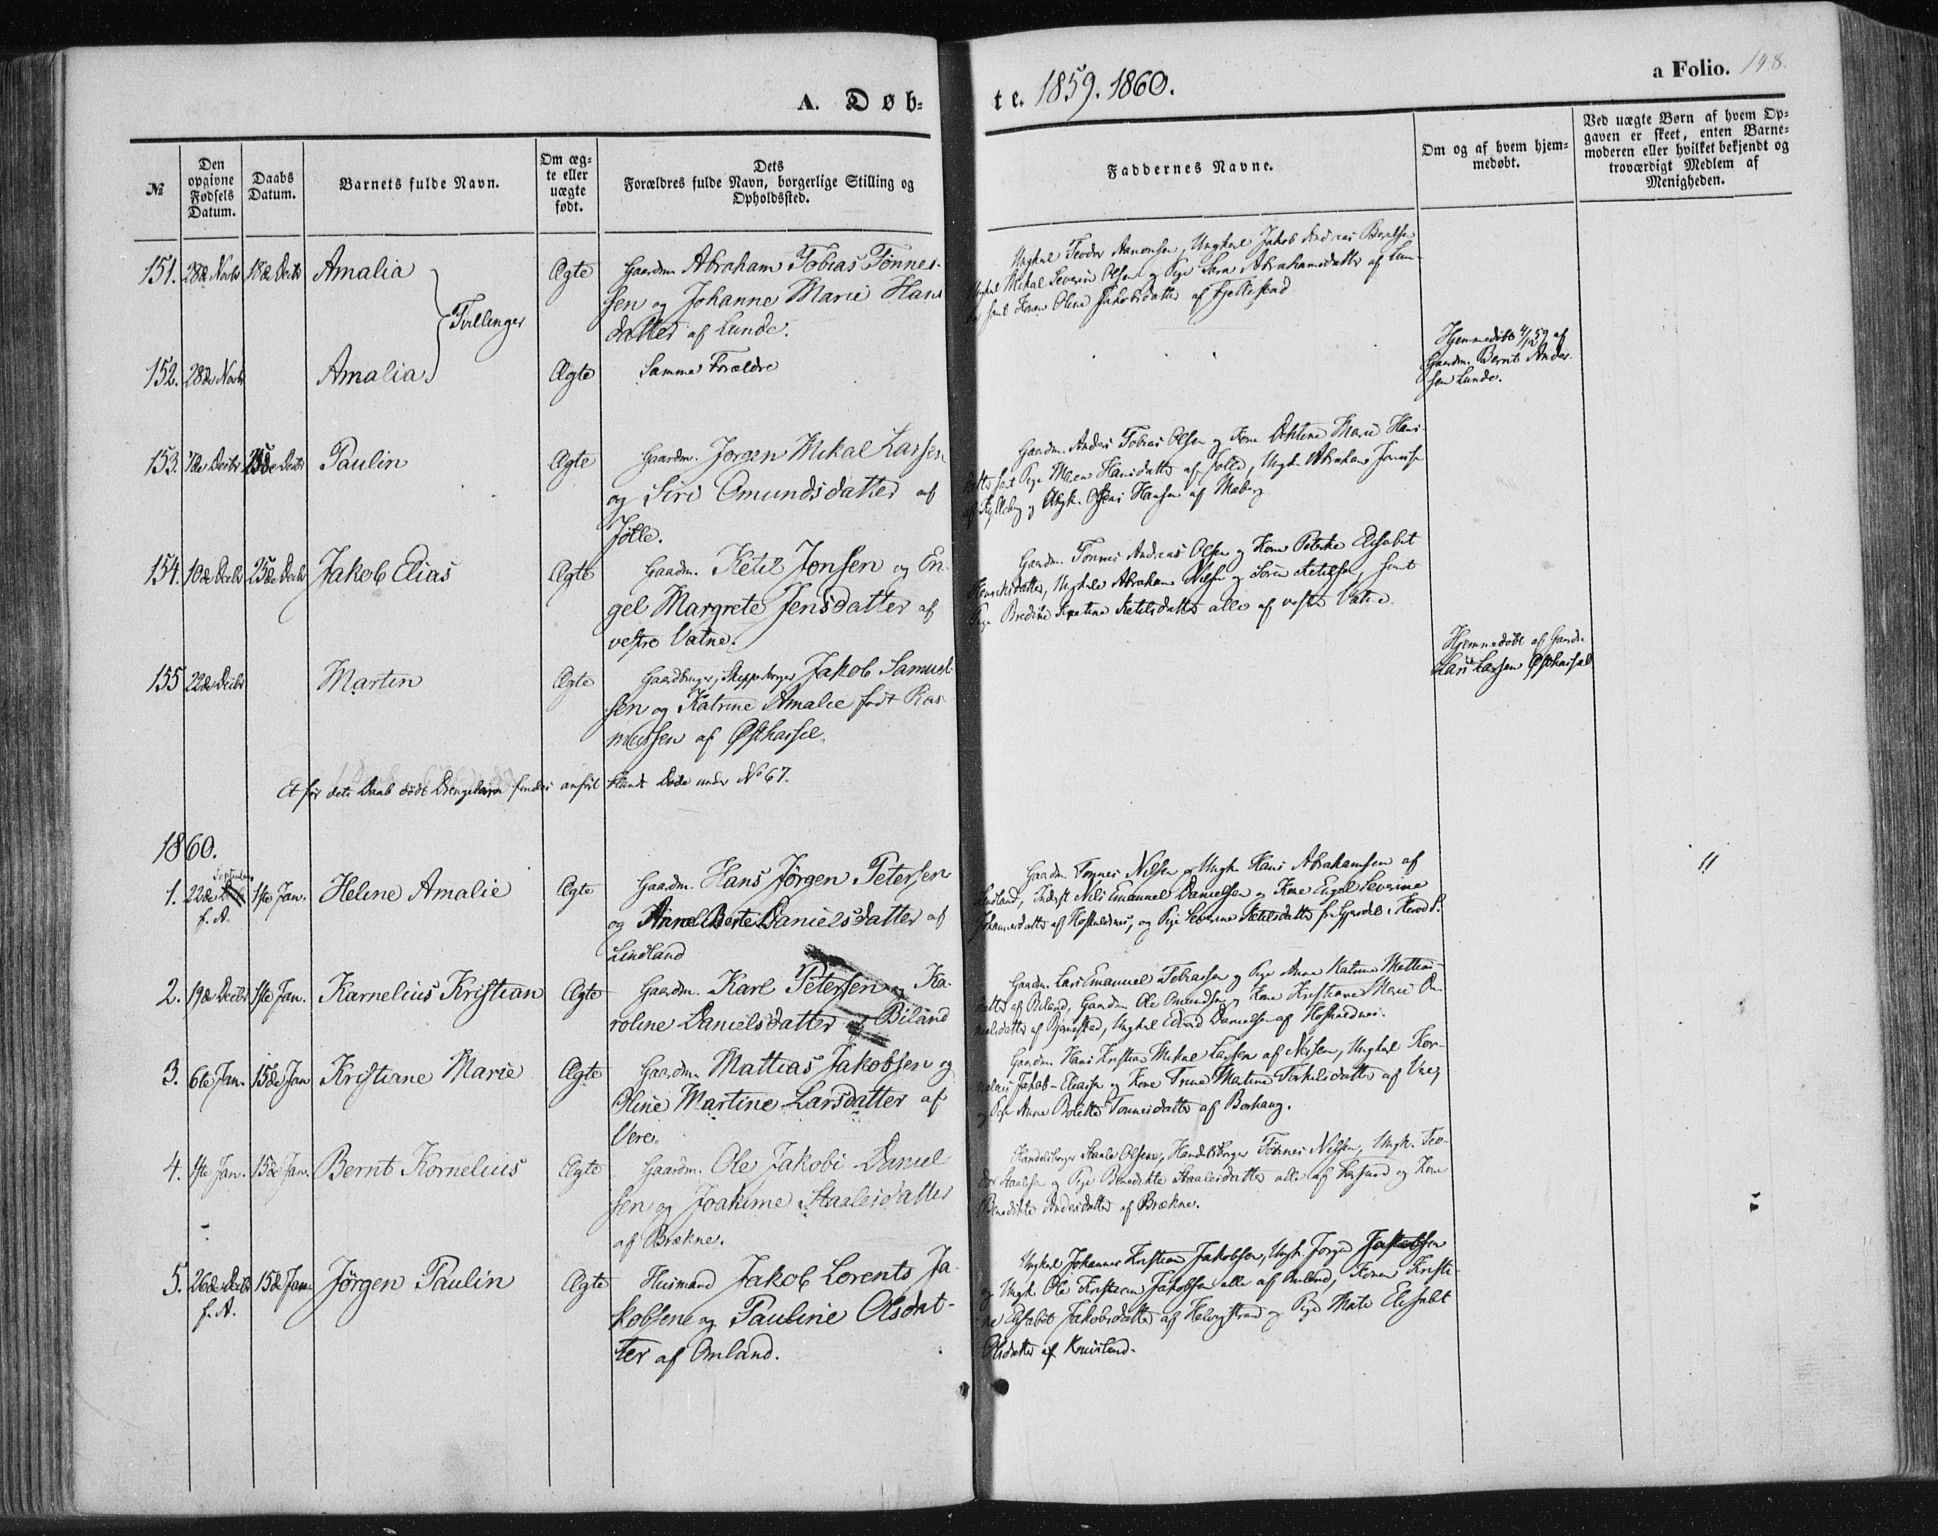 A. Døb-
te. 1859. 1860.
a Folio. 148.
№
Den opgivne Fødsels Datum.
Daabs Datum.
Barnets fulde Navn.
Om ægte eller uægte født.
Dets Forældres fulde Navn, borgerlige Stilling og Opholdssted.
Faddernes Navne.
Om og af hvem hjemmedøbt.
Ved uægte Børn af hvem Opgaven er skeet, enten Barnemoderen eller hvilket bekjendt og troværdigt Medlem af Menigheden.
151. 28de Novbr Decbr Amalia Ægte Gaardm. Abraham Tobias Tønnes-
sen og Johanne Marie Hans
datter af Lunde.
Tvillinger
Ungkal Teodor Aanonsen, Ungkal Jakob Andreas
Mikal Severin Olsen og Pige Sara Abrahamsdatter af Lun-
de samt Kone Oline Jakobsdatter af
152. 28de Novbr Amalia Ægte Samme Forældre
Hjemmedøbt 4/12 59 af
Gaardm. Bernt Ander-
sen Lunde.
153. Decbr 25de Decbr Paulin Ægte Gaardm. Jørgen Mikal Larsen
og Siri Omundsdatter af
Jølle.
Gaardm. Anders Tobias Olsen og Kone Marie Hans-
datter samt Pige Maren Hansdatter af Jølle, Ungk. Abraham
og Ungk. Hansen af
154. 10de Decbr 25de Decbr Jakob Elias Ægte Gaardm. Ketil Jonsen og En-
gel Margrete Jensdatter af
vestre Vatne.
Gaardm. Tønnes Andreas Olsen og Kone Elisabet
Henriksdatter, Ungkal Abraham Nilsen og Søren Ketilsen, samt
Pige Bredine Ketilsdatter alle af vestre Vatne.
155 22de Decbr Martin Ægte Gaardbruger, Skippsborger Jakob Samuel-
sen og Katrine Amalie født Ras-
mussen af Østhassel.
Hjemmedøbt af Gaardm.
Lars Larsen Østhassel
Et før dets Daab dødt Drengebarn findes anført blandt Døde under No 67.
1860.
1. 22de September 1ste Jan. Helene Amalie Ægte Gaardm. Hans Jørgen Petersen
f. A.
og Anne Berte Danielsdatter af
Lindland
Gaardm. Tønnes Nilsen og Ungk. Hans Abrahamsen af
Lindland, Inderst Nils Emanuel Danielsen og Kone Engel Severine
Johannesdatter af og Pige Severine Ketilsdatter fra i
"
2. 19de Decbr 1ste Jan. Karnelius Kristian Ægte Gaardm. Karl Petersen og Ka-
roline Danielsdatter af Biland
Gaardm. Lars Emanuel Tobiassen og Pige Anne Katrine Mattias-
datter af Biland, Gaardm. Ole Omundsen og Kone Kristiane Marie Da-
nielsdatter af Ungkal Edvard Danielsen af
3. 6te Jan. 15de Jan Kristiane Marie Ægte Gaardm. Mattias Jakobsen og
Oline Martine Larsdatter af
Vere.
Gaardm. Hans Kristian Mikal Larsen af Nesen, Ungkal Kor-
nelius Jakob Eliassen og Kone Trine Martine Terkelsdatter af Vere,
og Pige Anne Bolette Tønnesdatter af Borhaug.
4. 1ste Jan. 15de Jan. Bernt Kornelius Ægte Gaardm. Ole Jakobi Daniel
sen og Joakime Staalesdatter
af Brekne.
Handelsborger Staale Olsen, Handelsborger Tønnes Nilsen, Ungk. Teo-
dor Staalesen og Pige Benedikte Staalesdatter alle af og Kone
Benedikte Andersdatter af Brekne.
5. 26de Decbr 15de Jan. Jørgen Paulin Ægte Husmand Jakob Lorents Ja-
f. A.
kobsen og Pauline Olsdat-
ter af Omland.
Ungkal Johannes Kristian Jakobsen, Ungk. Jørgen Jakobsen
og Ungk. Ole Kristian Jakobsen alle af Omland, Konen Kristi-
ne Elisabet Jakobsdatter af Helvigstrand og Pige Mate Elisabet
Olsdatter af